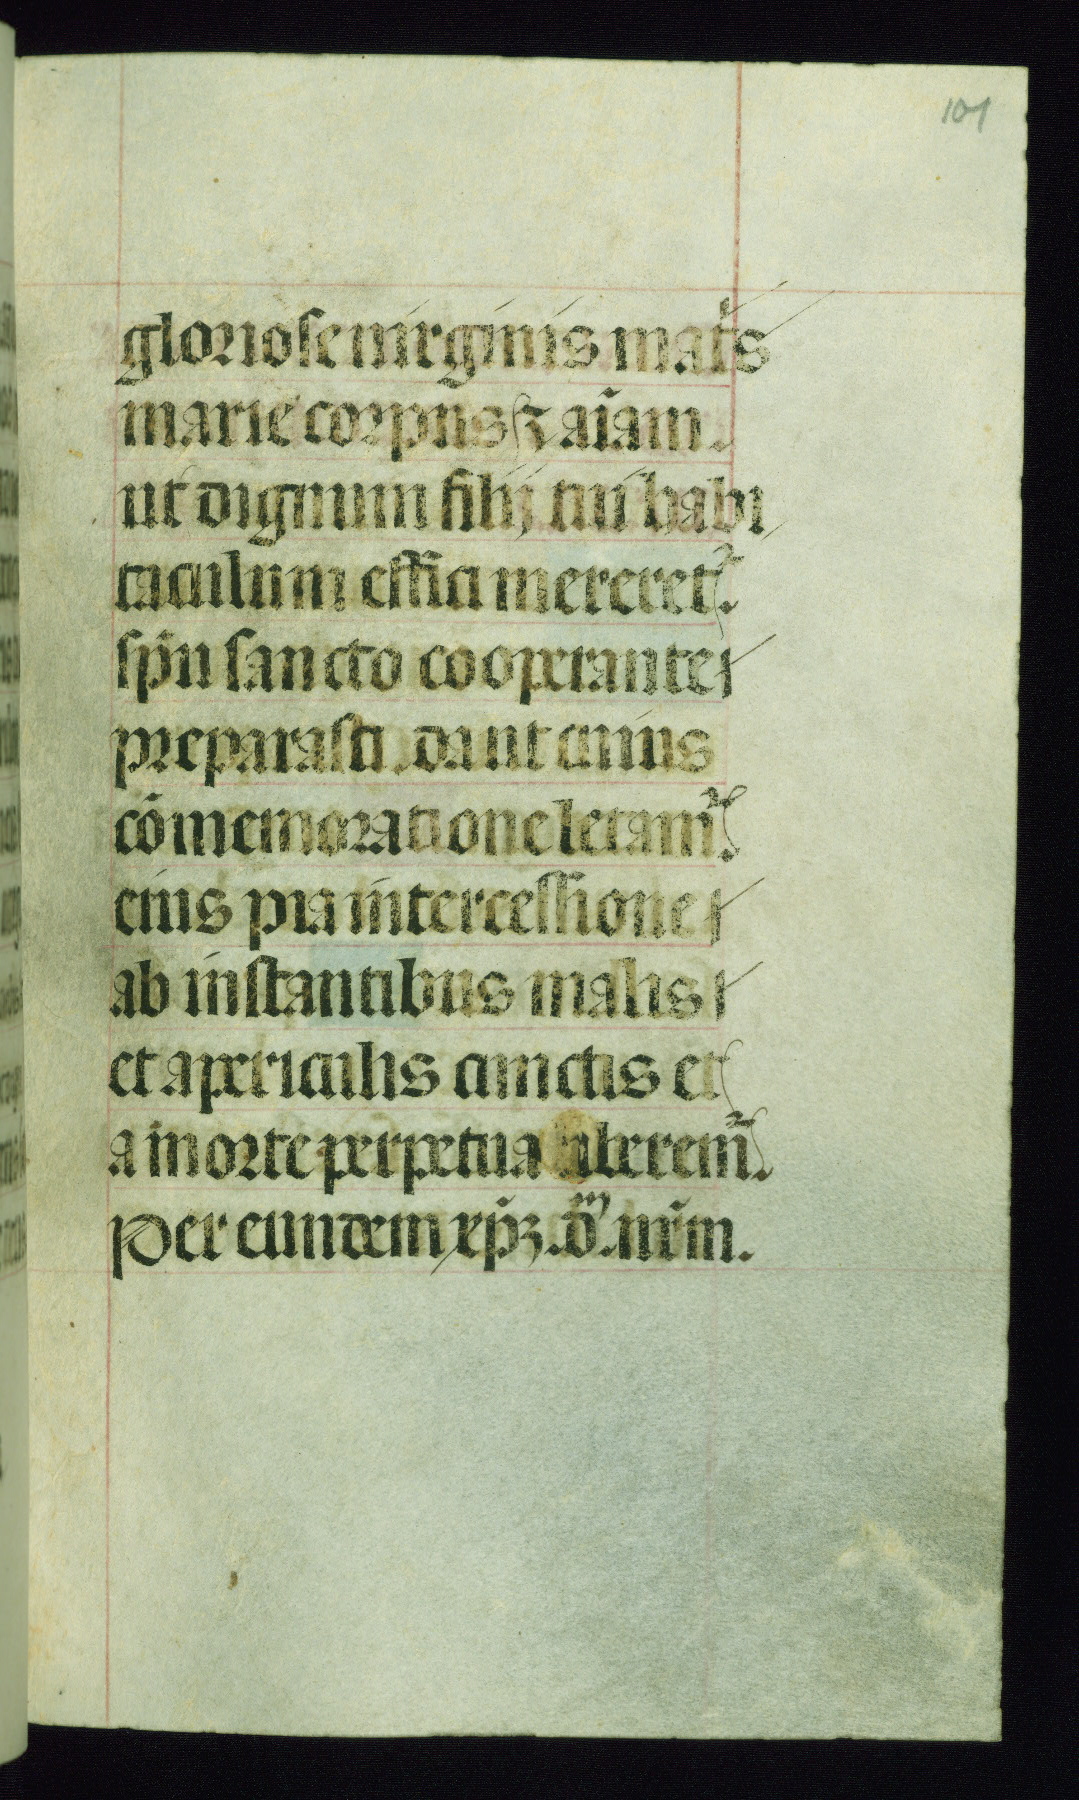 101
gloriose uirginis mat̃s
marie corpus ⁊ aĩam.
ut dignum filij tui habi
taculum effici mereret᷑.
sp̃u sancto cooperante
preparasti. da ut cuius
cõmemoratione letam᷑.
eius pia intercessione
ab instantibus malis
et a periculis cunctis et
a morte perpetua liberem᷑.
Per eundem xp̃ꝫ. dm̃. nr̃m.